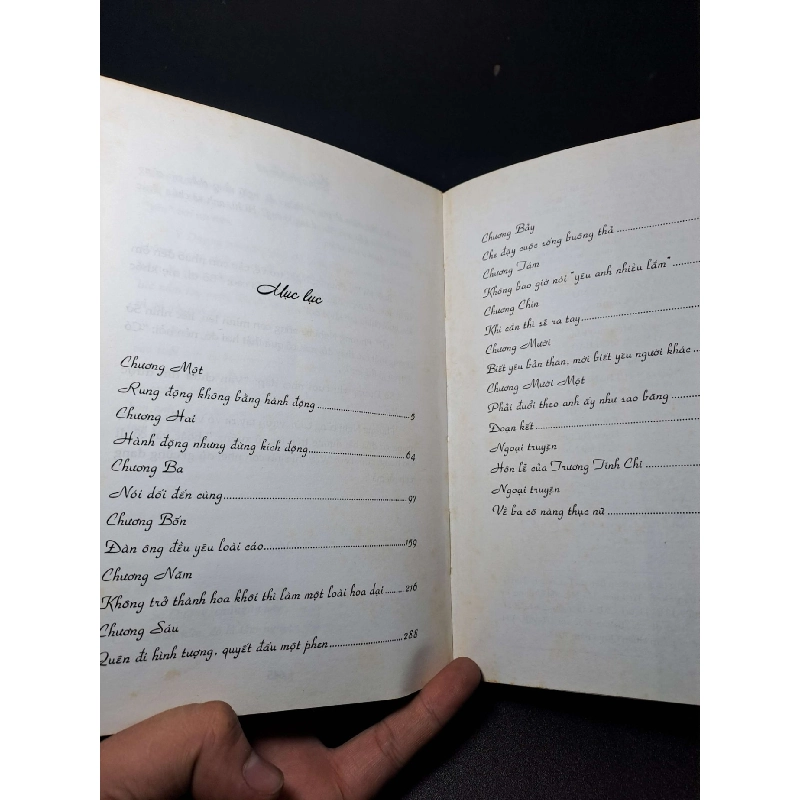 Mục lục
Chương Một
Rung động không bằng hành động 5
Chương Hai
Hành động nhưng đừng kích động 64
Chương Ba
Nói dối đến cùng 97
Chương Bốn
Đàn ông đều yêu loài cáo 159
Chương Năm
Không trở thành hoa khôi thì làm một loài hoa dại 216
Chương Sáu
Quên đi hình tượng, quyết đấu một phen 288
Chương Bảy
Che đậy cuộc sống buông thả
Chương Tám
Không bao giờ nói "yêu anh nhiều lắm"
Chương Chín
Khi cần thì sẽ ra tay
Chương Mười
Biết yêu bản thân, mới biết yêu người khác
Chương Mười Một
Phải đuổi theo anh ấy như rao bảng
Đoạn kết
Ngoại truyện
Hôn lễ của Trương Tinh Chi
Ngoại truyện
Về ba cô nàng thục nữ